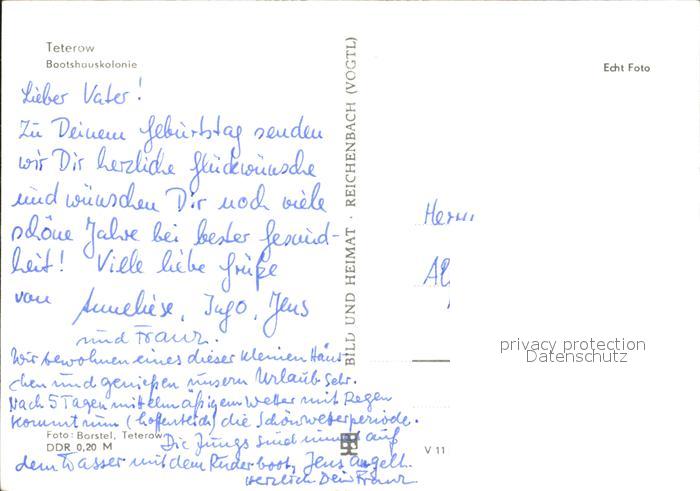 Teterow
Bootshauskolonie
Echt Foto
Lieber Vater!
Zu Deinem Geburtstag senden
wir Dir herzliche Glückwünsche
und wünschen Dir noch viele
schöne Jahre bei bester Gesund-
heit! Viele liebe Grüße
von Anneliese, Ingo, Jens
und Franz.
Wir bewohnen eines dieser kleinen Häus-
chen und genießen unsern Urlaub sehr.
Nach 5 Tagen mittelmäßigem Wetter mit Regen
kommt nun (hoffentlich) die Schönwetterperiode.
Die Jungs sind immer auf
dem Wasser mit dem Ruderboot, Jens angelt.
Herzlich Dein Franz
Foto: Borstel, Teterow
DDR 0,20 M
BILD UND HEIMAT · REICHENBACH (VOGTL)
V 11
Herrn
privacy protection
Datenschutz